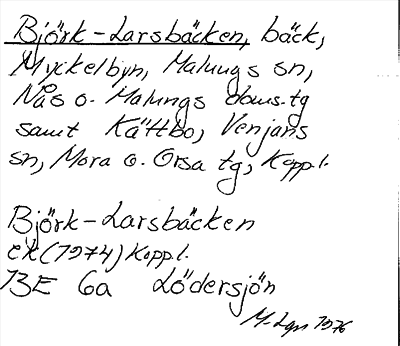 Björk-Larsbäcken, bäck,
Myckelbyn, Malungs sn,
Nås o. Malungs doms.tg
samt Kättbo, Venjans
sn, Mora o. Orsa tg, Kopp.l.
Björk-Larsbäcken
ek (1974) Kopp.l.
13E 6a Lödersjön
M. Lgn 1976